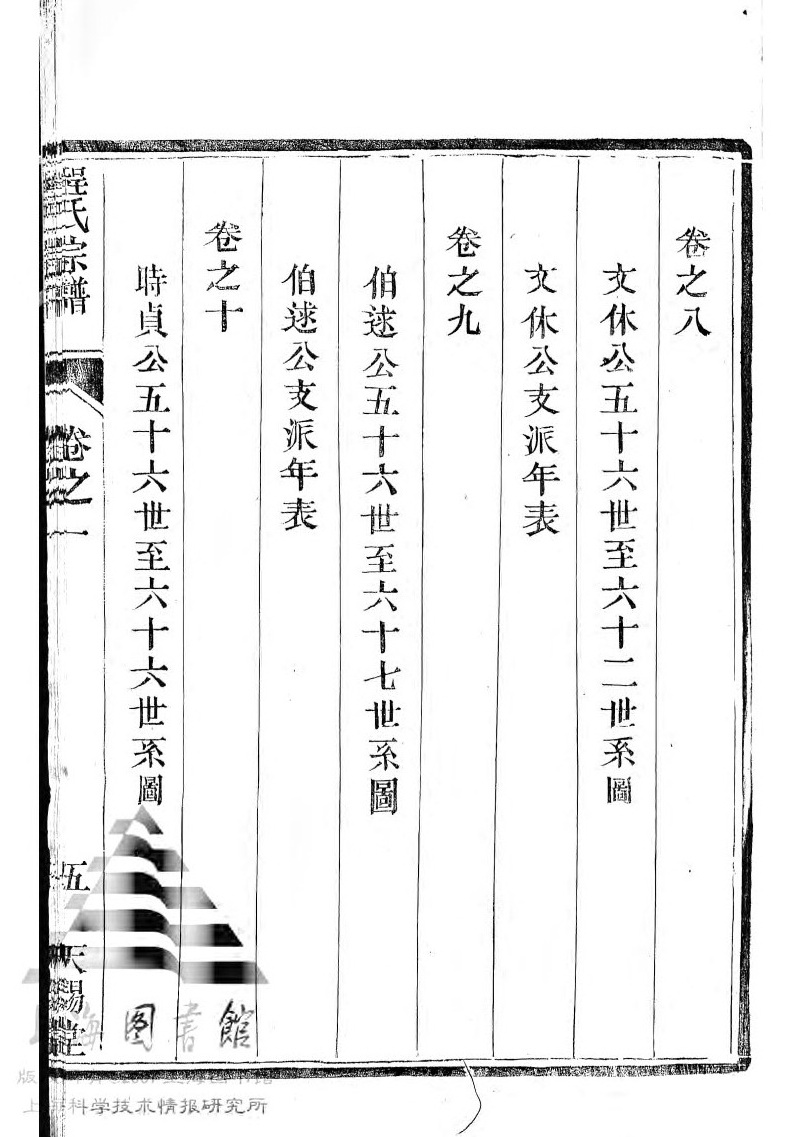 卷之八
文休公五十六世至六十二世系圖
文休公支派年表
卷之九
伯逑公五十六世至六十七世系圖
伯逑公支派年表
卷之十
時貞公五十六世至六十六世系圖
程氏宗譜
卷之一
五
天錫堂
上海图書館
上海科学技术情报研究所